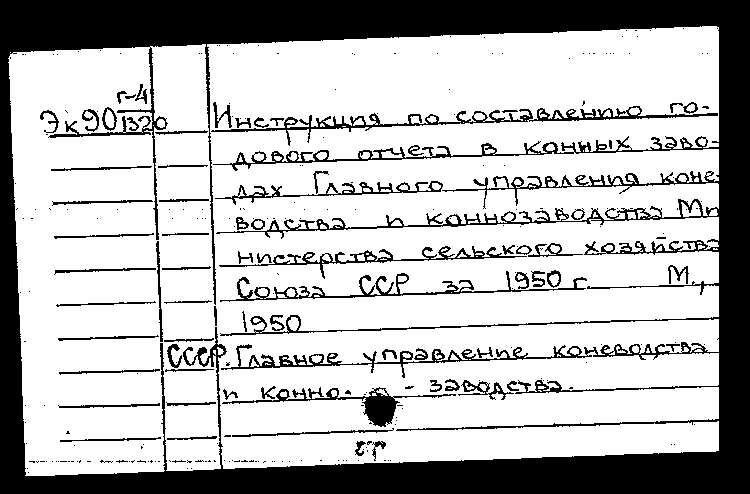 г-4
Эк90 1320 Инструкция по составлению го-
дового отчета в конных заво-
дах Главного управления коне-
водства и коннозаводства Ми
нистерства сельского хозяйства
Союза ССР за 1950 г. М.,
1950
СССР. Главное управление коневодства
и конно- - заводства.